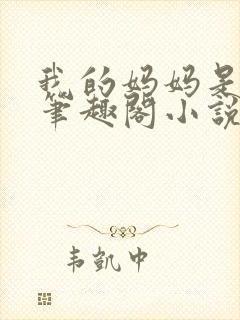 我的妈妈是
笔趣阁小说
韦凯中